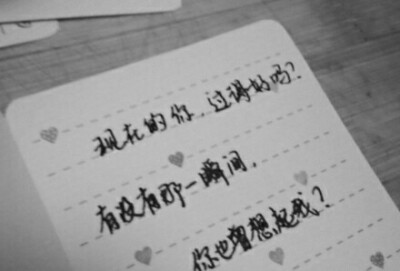 现在的你，过得好吗？
有没有那一瞬间，
你也曾想起我？